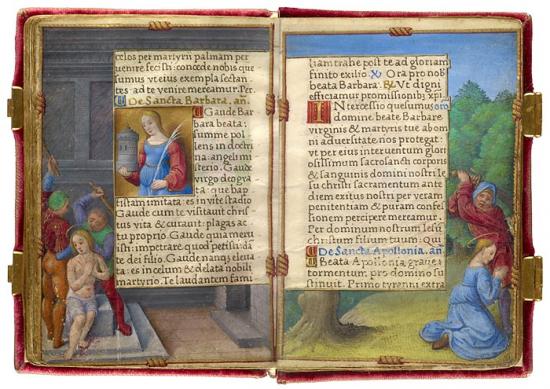 celos per martyrii palmam per
uenire fecisti: concede nobis que
sumus vt eius exempla sectan
tes ad te venire mereamur. Per.
De Sancta Barbara. añ.
Gaude Bar
bara beata:
summe pol
lens in doctri
na: angeli mi
sterio. Gaude
virgo deo gra
ta: que bap
tistam imitata: es in vite stadio
Gaude cum te visitauit chris
tus vita & curauit: plagas ac
tu proprio. Gaude quia meru
isti: impetrare quod petisti: da
te dei filio. Gaude nanq; eleua
ta: es in celum & delata nobili
martyrio. Te laudantem fami
liam trahe post te ad gloriam
finito exilio Ora pro nob
beata Barbara. Vt digni
efficiamur promissionib xpi.
Intercessio quesumus
domine beate Barbare
virginis & martyris tue ab om
ni aduersitate nos protegat:
vt per eius interuentum glori
osissimum sacrosancti corporis
& sanguinis domini nostri Ie
su christi sacramentum ante
diem exitus nostri per veram
penitentiam & puram confes
sionem percipere mereamur.
Per dominum nostrum Iesu
christum filium tuum. Qui
De Sancta Apollonia. añ
Beata Apollonia graue
tormentum, pro domino su
stinuit. Primo tyranni extra